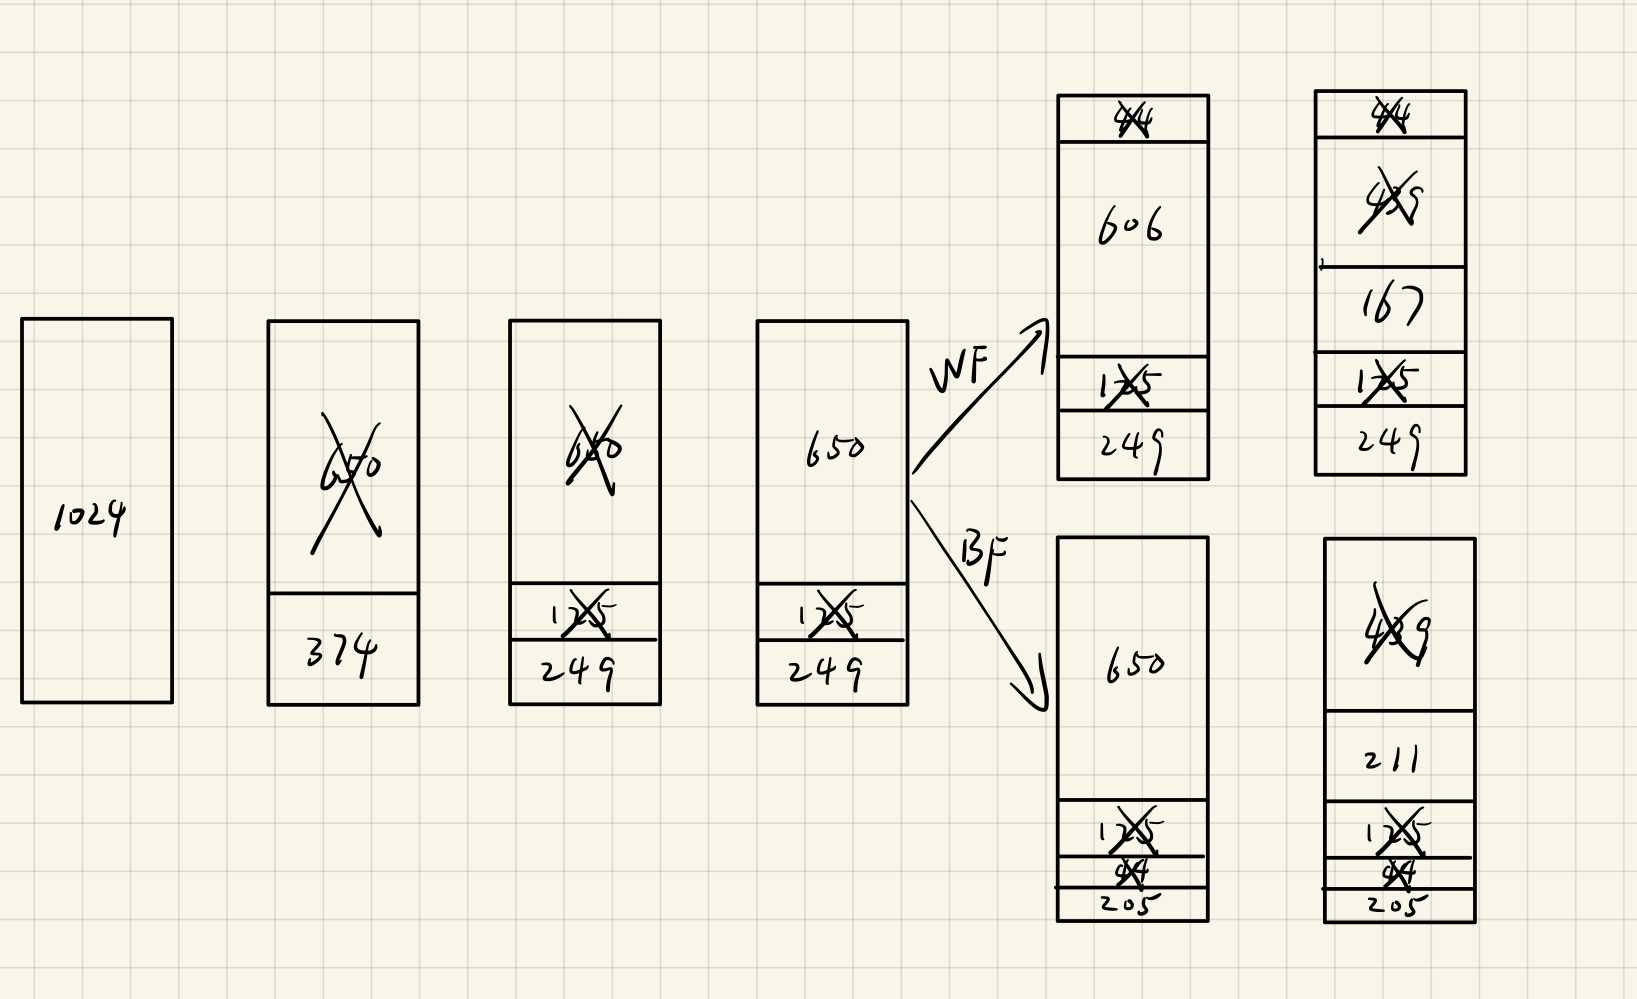 1024
650
374
650
125
249
650
125
249
WF
BF
44
606
125
249
44
439
167
125
249
650
125
44
205
439
211
125
44
205